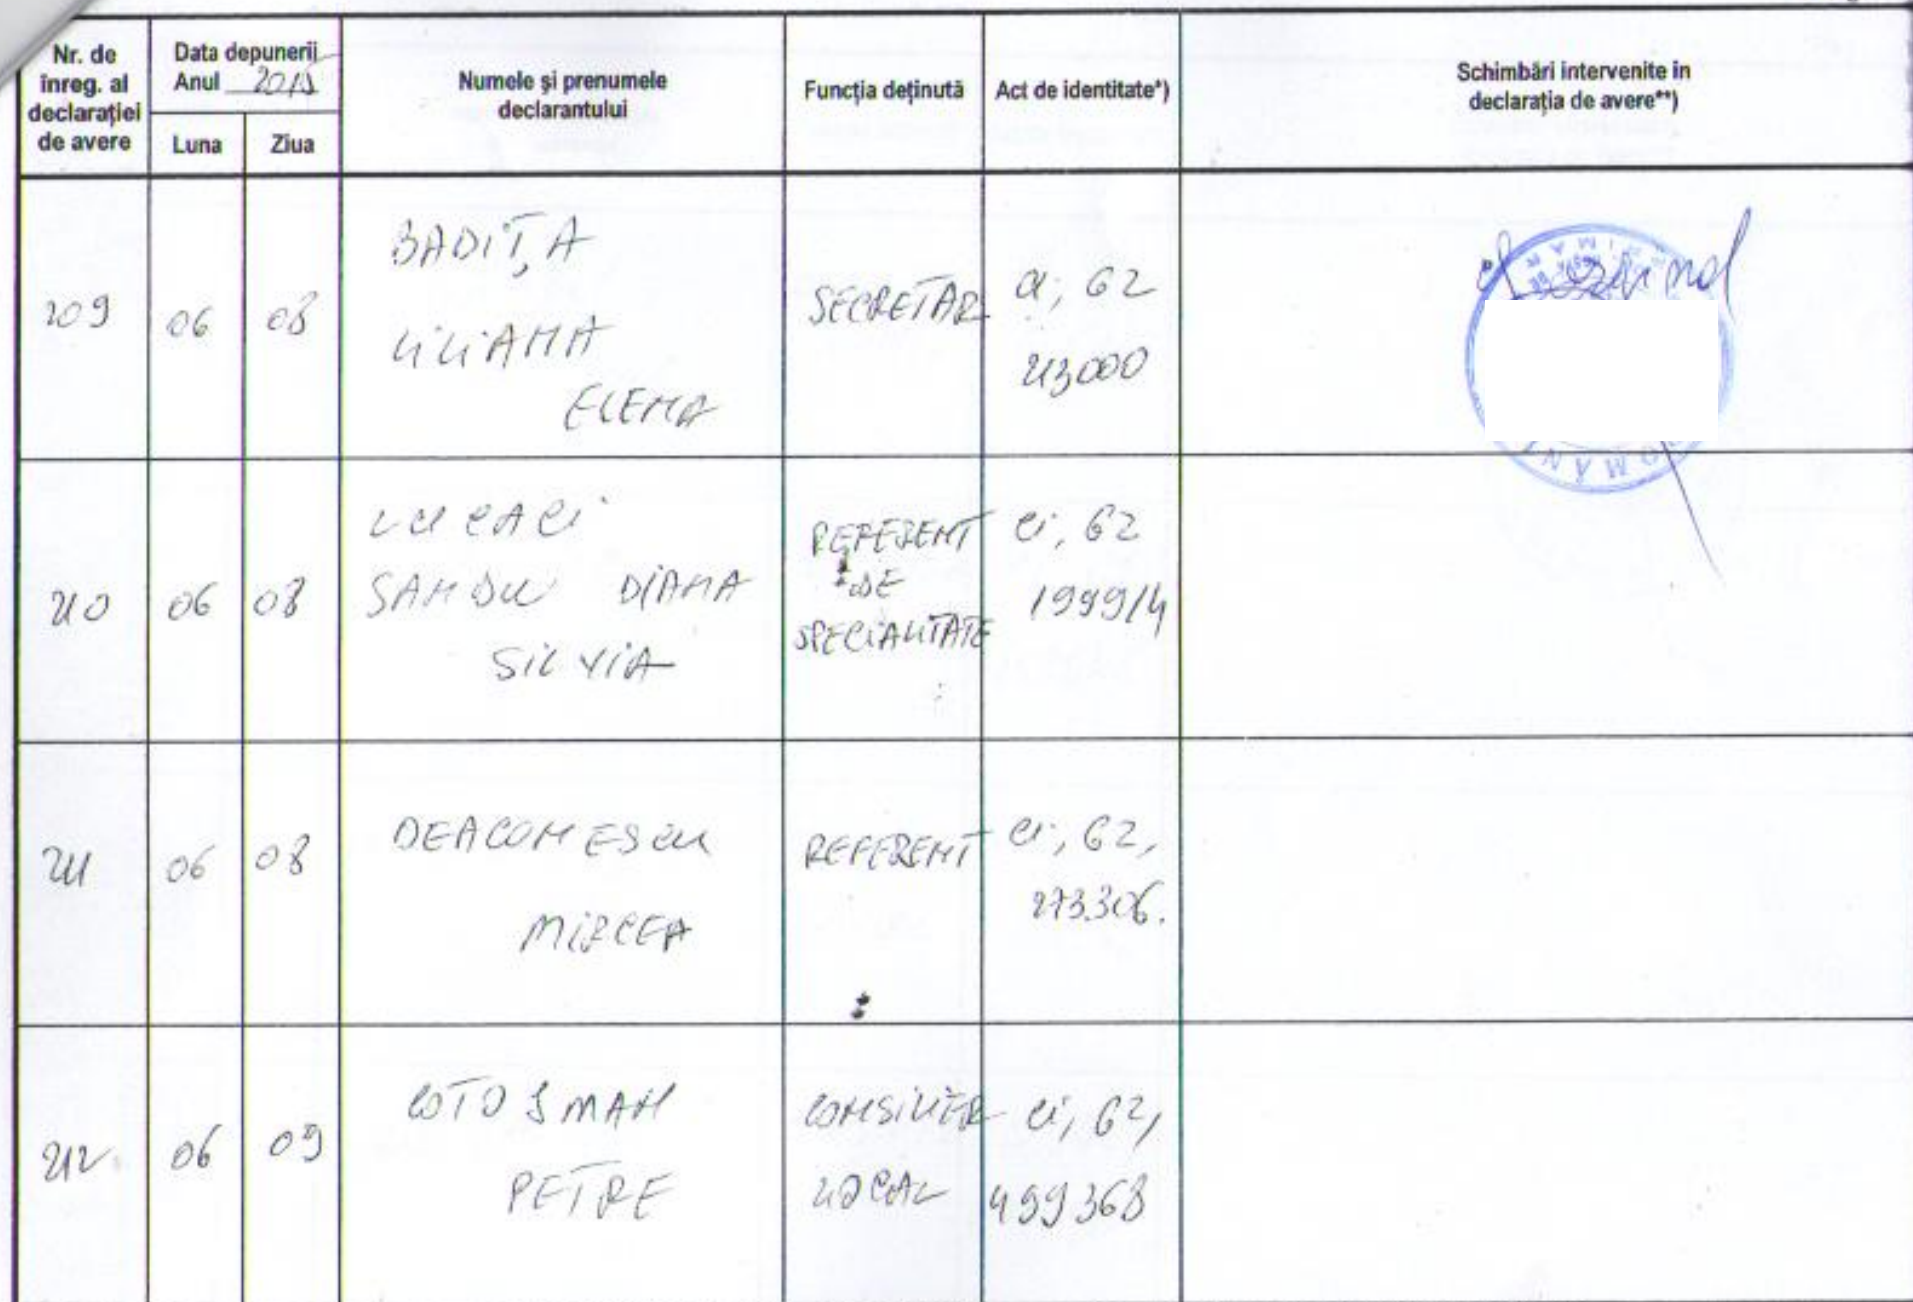 Nr. de înreg. al declarației de avere
Data depunerii
Anul
Luna
Ziua
Numele și prenumele declarantului
Funcția deținută
Act de identitate*)
Schimbări intervenite in declarația de avere**)
209
06
08
BADIȚA
LILIANA
ELENA
SECRETAR
Ci, GZ
213000
210
06
08
LUCACI
SANDU DIANA
SILVIA
REFERENT
DE
SPECIALITATE
Ci, GZ
199914
211
06
08
DEACONESCU
MIRCEA
REFERENT
Ci, GZ,
273306.
212
06
09
COTOSMAN
PETRE
CONSILIER
LOCAL
Ci, GZ,
499368